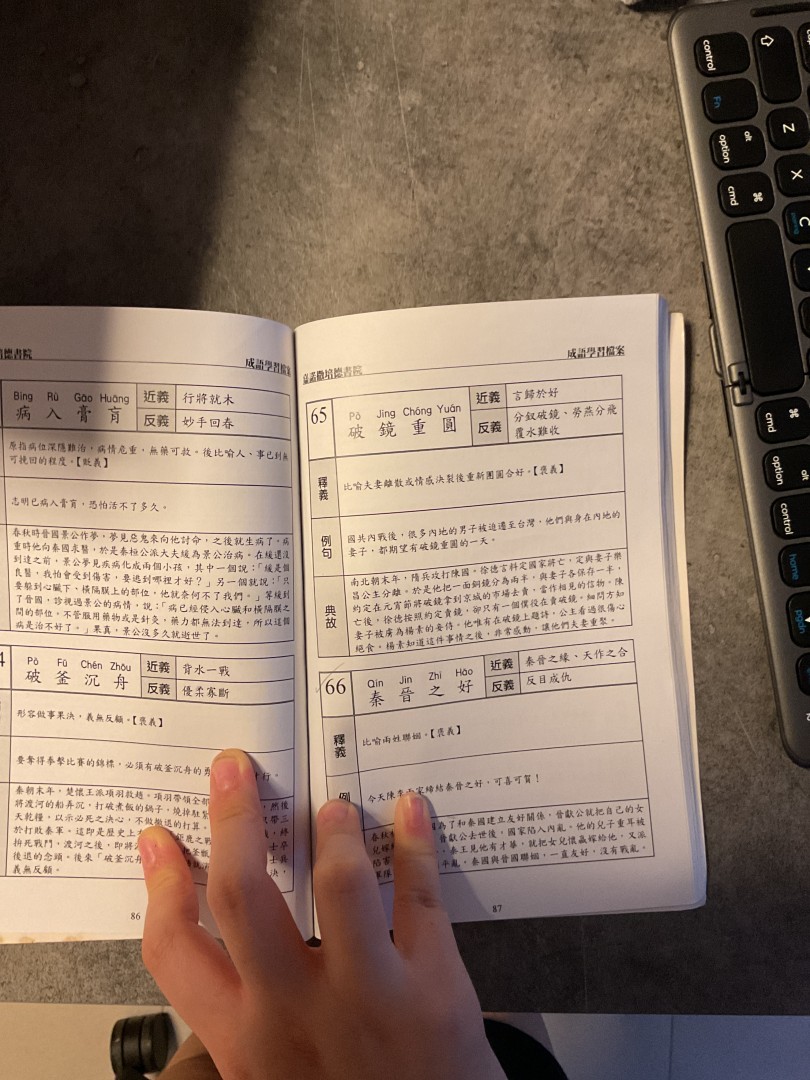 培德書院
成語學習檔案
Bìng Rù Gāo Huāng
病入膏肓
近義 行將就木
反義 妙手回春
原指病位深隱難治，病情危重，無藥可救。後比喻人、事已到無
可挽回的程度。【貶義】
志明已病入膏肓，恐怕活不了多久。
春秋時晉國景公作夢，夢見惡鬼來向他討命，之後就生病了，病
重時他向秦國求醫，於是秦桓公派大夫緩為景公治病。在緩還沒
到達之前，景公夢見疾病化成兩個小孩，其中一個說：「緩是個
良醫，我怕會受到傷害，要逃到哪裡才好？」另一個就說：「只
要躲到心臟下、橫隔膜上的部位，他就奈何不了我們。」等緩到
了晉國，診視過景公的病情，說：「病已經侵入心臟和橫隔膜之
間的部位，不管服用藥物或是針灸，藥力都無法到達，所以這個
病是治不好了。」果真，景公沒多久就逝世了。
4
Pò Fǔ Chén Zhōu
破釜沉舟
近義 背水一戰
反義 優柔寡斷
形容做事果決，義無反顧。【褒義】
要奪得拳擊比賽的錦標，必須有破釜沉舟的勇 才行。
秦朝末年，楚懷王派項羽救趙。項羽帶領全部 ，然後
將渡河的船弄沉，打破煮飯的鍋子，燒掉駐紮 帶三
天乾糧，以示必死之決心，不做撤退的打算。
於打敗秦軍。這即是歷史上 鉅鹿之戰 ，終
拚死戰鬥，渡河之後，即將 把釜甑 士卒
後退的念頭。後來「破釜沉 士兵
義無反顧。 決，
86
嘉諾撒培德書院
成語學習檔案
65
Pò Jìng Chóng Yuán
破鏡重圓
近義 言歸於好
反義 分釵破鏡、勞燕分飛
覆水難收
釋義 比喻夫妻離散或情感決裂後重新團圓合好。【褒義】
例句 國共內戰後，很多內地的男子被迫遷至台灣，他們與身在內地的
妻子，都期望有破鏡重圓的一天。
典故 南北朝末年，隋兵攻打陳國。徐德言料定國家將亡，定與妻子樂
昌公主分離。於是他把一面銅鏡分為兩半，與妻子各保存一半，
約定在元宵節將破鏡拿到京城的市場去賣，當作相見的信物。陳
亡後，徐德按照約定賣鏡，卻只有一個僕役在賣破鏡。細問方知
妻子被虜為楊素的妾侍。他唯有在破鏡上題詩，公主看過很傷心
絕食，楊素知道這件事情之後，非常感動，讓他們夫妻重聚。
66
Qín Jìn Zhī Hǎo
秦晉之好
近義 秦晉之緣、天作之合
反義 反目成仇
釋義 比喻兩姓聯姻。【褒義】
例 今天陳李兩家締結秦晉之好，可喜可賀！
春秋 為了和秦國建立友好關係，晉獻公就把自己的女
兒嫁 晉獻公去世後，國家陷入內亂，他的兒子重耳被
陷害 秦王見他有才華，就把女兒懷嬴嫁給他，又派
軍隊 平亂。秦國與晉國聯姻，一直友好，沒有戰亂。
87
control
Fn
Z
alt
option
X
cmd ⌘
C
⌘
cmd
alt
option
control
home
pgdn